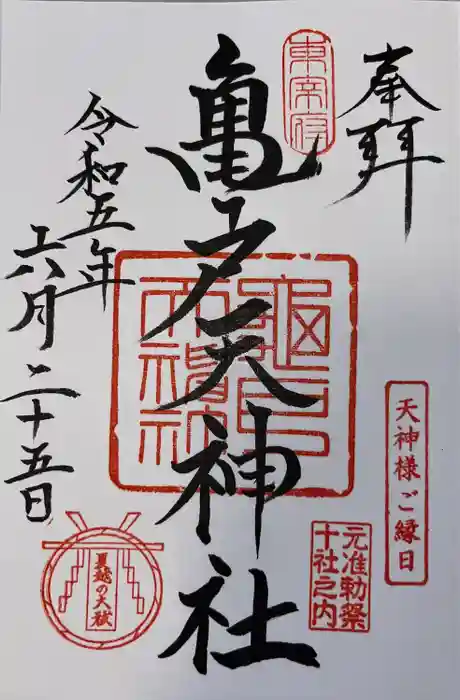 奉拝
東宰府
亀戸天神社
令和五年
六月二十五日
天神様ご縁日
元准勅祭
十社之内
夏越の大祓